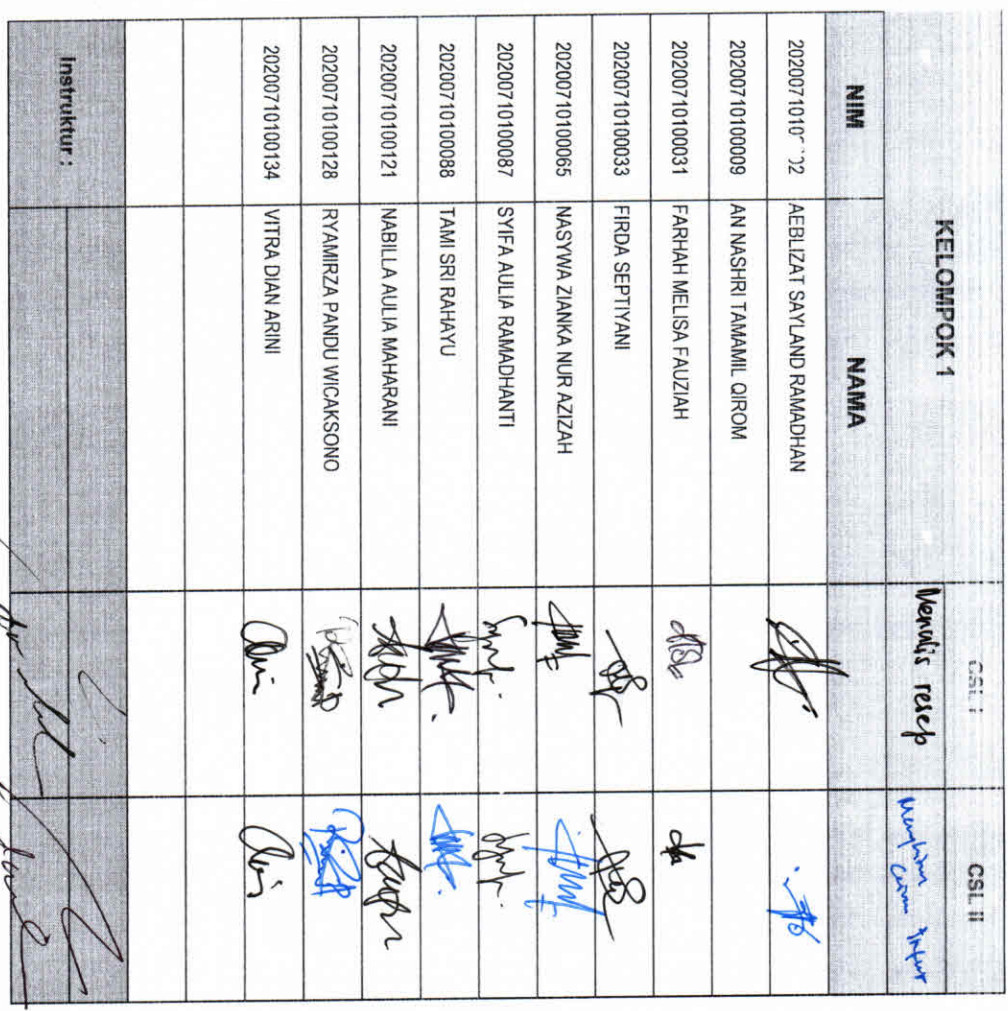 KELOMPOK 1 CSL I CSL II
Menulis resep Menghitung Cairan Infus
NIM NAMA
AEBLIZAT SAYLAND RAMADHAN
20200710100009 AN NASHRI TAMAMIL QIROM
20200710100031 FARHAH MELISA FAUZIAH
20200710100033 FIRDA SEPTIYANI
20200710100065 NASYWA ZIANKA NUR AZIZAH
20200710100087 SYIFA AULIA RAMADHANTI
20200710100088 TAMI SRI RAHAYU
20200710100121 NABILLA AULIA MAHARANI
20200710100128 RYAMIRZA PANDU WICAKSONO
20200710100134 VITRA DIAN ARINI
Instruktur :